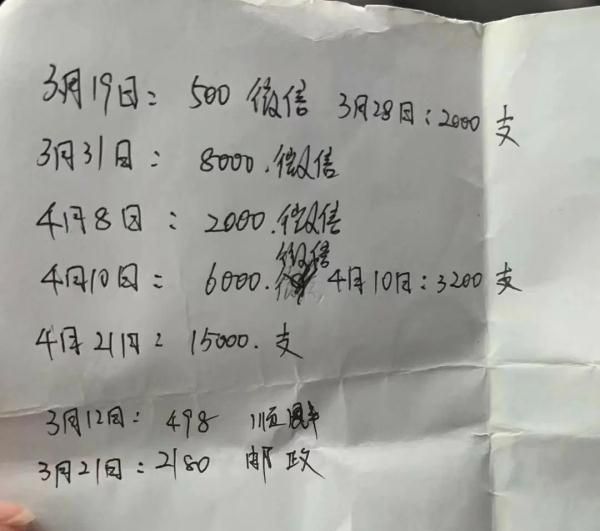 3月19日: 500 微信 3月28日: 2000 支
3月31日: 8000.微信
4月8日: 2000.微信
微信
4月10日: 6000. 4月10日: 3200 支
4月21日: 15000. 支
3月12日: 498 顺丰
3月21日: 2180 邮政